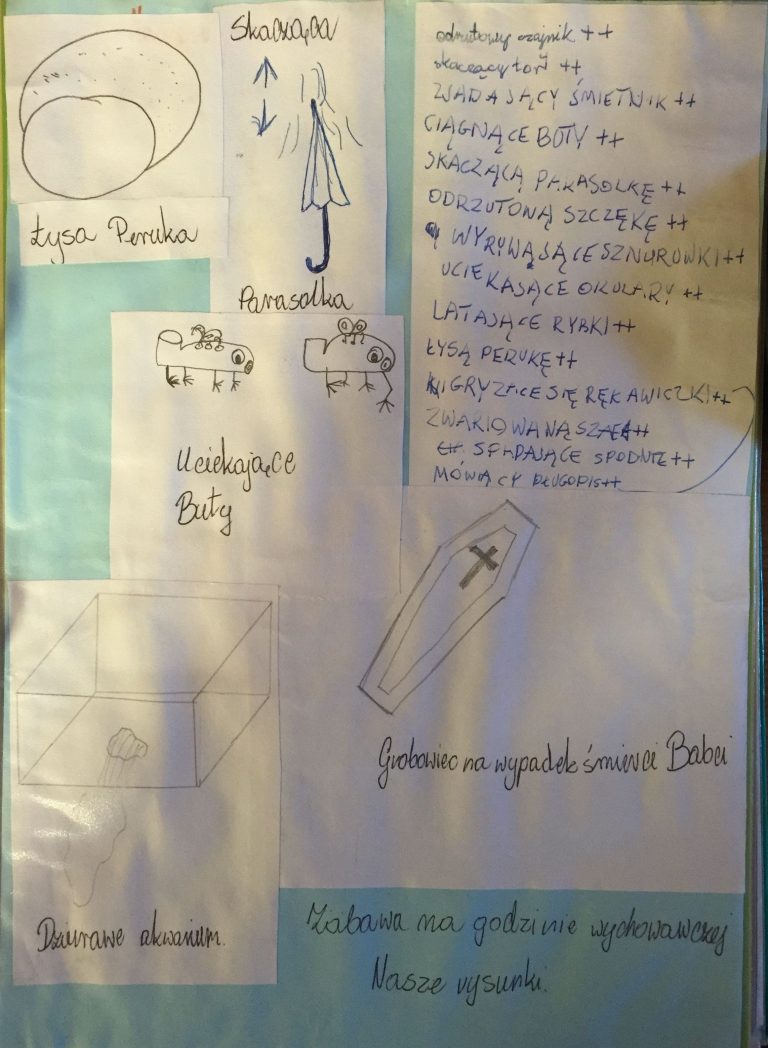 Skacząca
Parasolka
Łysa Peruka
odrzutowy czajnik ++
skaczący tort ++
ZJADAJĄCY ŚMIETNIK ++
CIĄGNĄCE BUTY ++
SKACZĄCĄ PARASOLKĘ ++
ODRZUTONĄ SZCZĘKĘ ++
WYRYWAJĄCE SZNURÓWKI ++
UCIEKAJĄCE OKULARY ++
LATAJĄCE RYBKI ++
ŁYSĄ PERUKĘ ++
GRYZĄCE SIĘ RĘKAWICZKI ++
ZWARIOWANĄ
SPADAJĄCE SPODNIE ++
MÓWIĄCY DŁUGOPIS ++
Uciekające
Buty
Grobowiec na wypadek śmierci Babci
Dziurawe akwarium.
Zabawa na godzinie wychowawczej
Nasze rysunki.